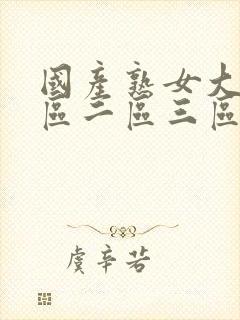 國產熟女大
區二區三區
虞辛若